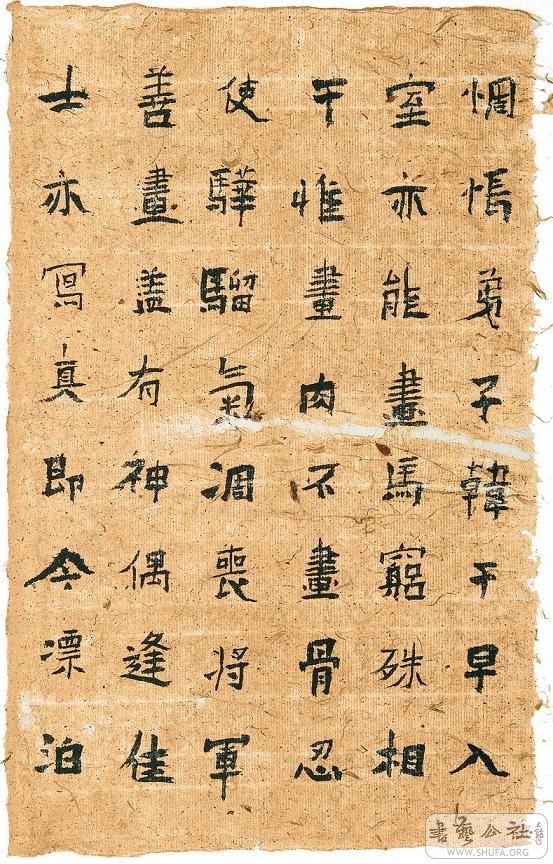 惆悵弟子韓干早入
室亦能畫馬窮殊相
干惟畫肉不畫骨忍
使驊騮氣凋喪將軍
善畫盖有神偶逢佳
士亦寫真即今漂泊
書藝公社
WWW.SHUFA.ORG